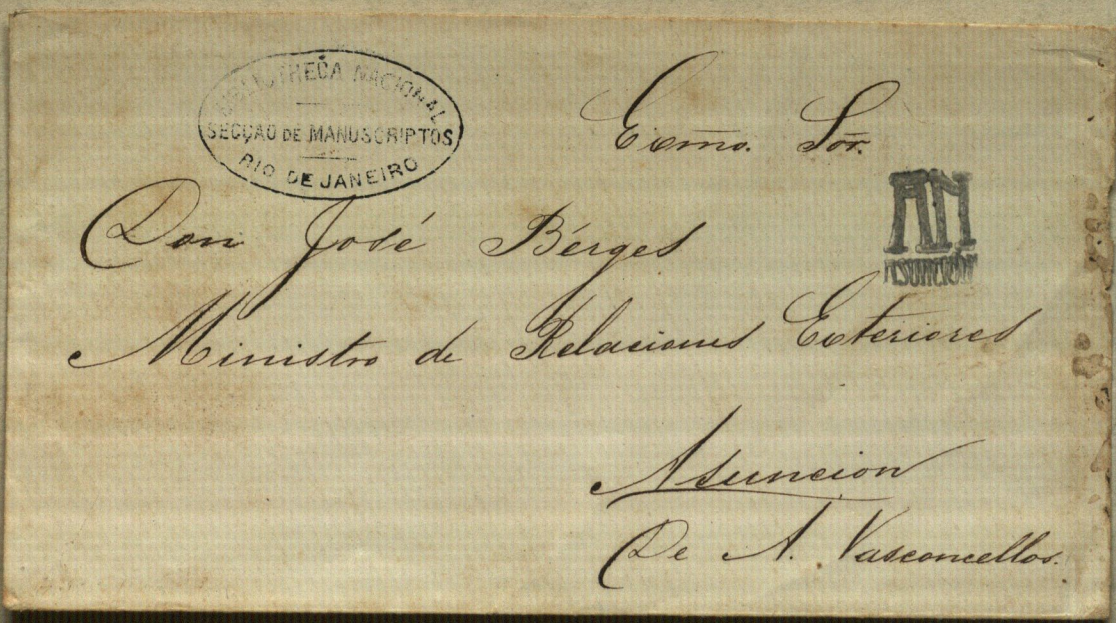 BIBLIOTHECA NACIONAL
SECÇÃO DE MANUSCRIPTOS
RIO DE JANEIRO
Exmo. Sōr.
AN
ASUNCIÓN
Don José Bérges
Ministro de Relaciones Exteriores
Asuncion
De A. Vasconcellos.